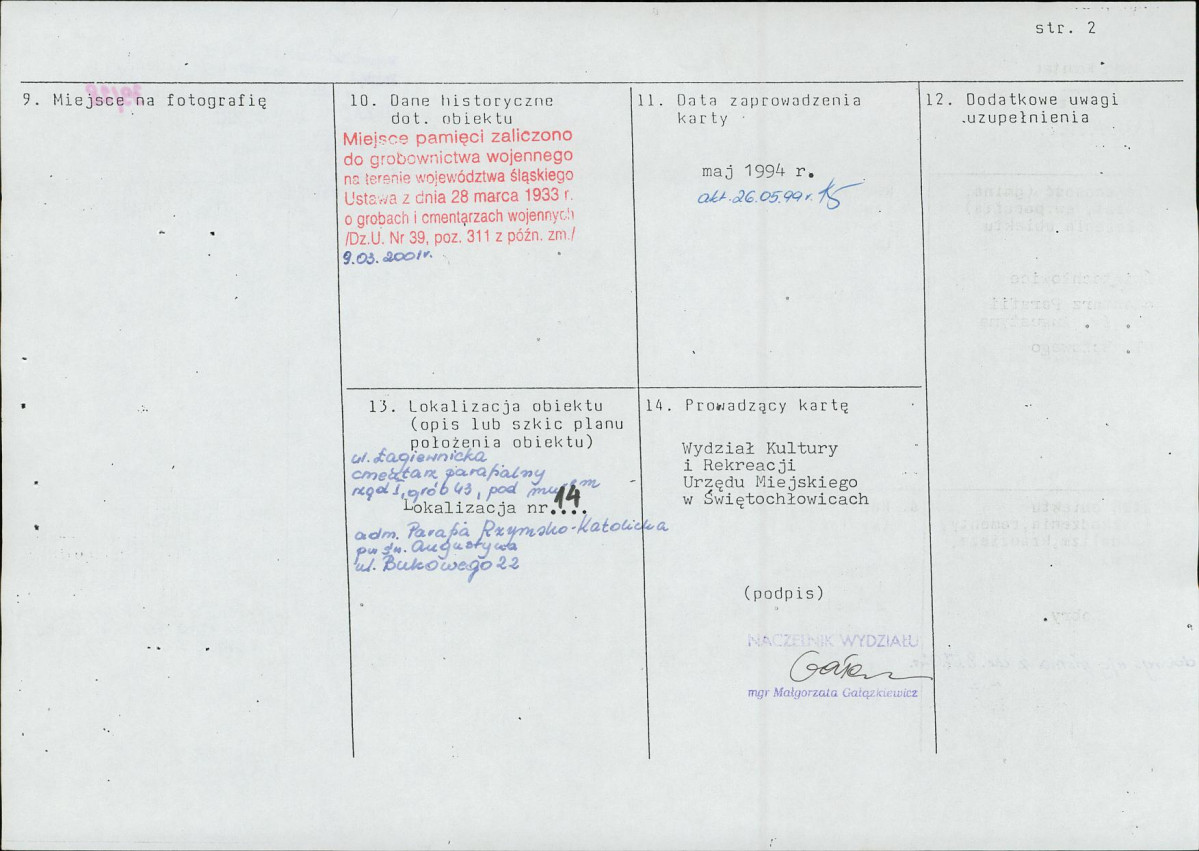 str. 2
9. Miejsce na fotografię
10. Dane historyczne
dot. obiektu
Miejsce pamięci zaliczono
do grobownictwa wojennego
na terenie województwa śląskiego
Ustawa z dnia 28 marca 1933 r.
o grobach i cmentarzach wojennych
/Dz.U. Nr 39, poz. 311 z późn. zm./
9.03.2001r.
11. Data zaprowadzenia
karty
maj 1994 r.
akt. 26.05.99r.
12. Dodatkowe uwagi
uzupełnienia
13. Lokalizacja obiektu
(opis lub szkic planu
położenia obiektu)
ul. Łagiewnicka
cmentarz parafialny
rząd I, grób 43, pod murem
Lokalizacja nr 14
adm. Parafia Rzymsko-Katolicka
pw św. Augustyna
ul. Bukowego 22
14. Prowadzący kartę
Wydział Kultury
i Rekreacji
Urzędu Miejskiego
w Świętochłowicach
(podpis)
NACZELNIK WYDZIAŁU
mgr Małgorzata Gałązkiewicz